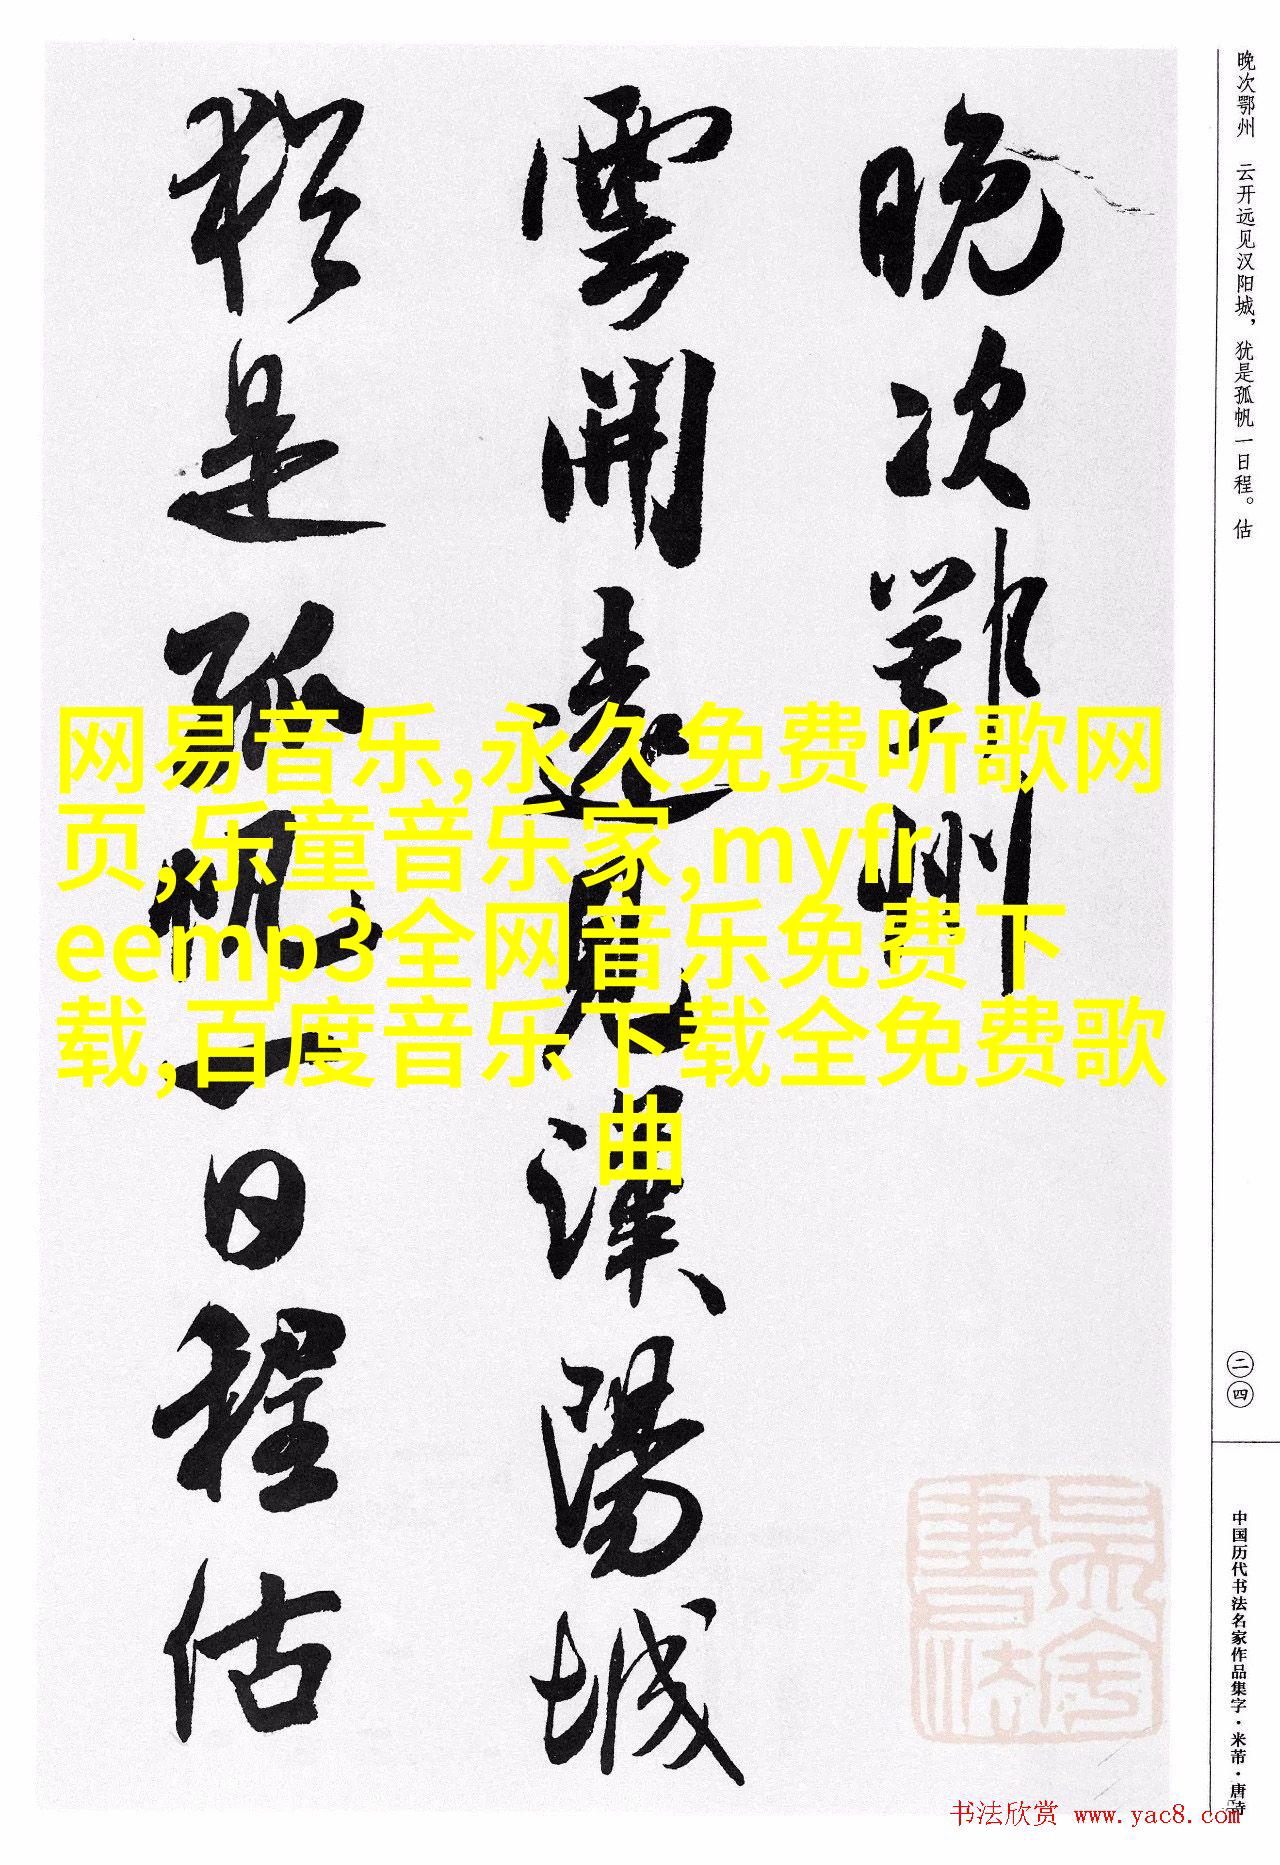 晚次鄂州
雲開遠見漢陽城
猶是孤帆一日程估
晚次鄂州 云开远见汉阳城，犹是孤帆一日程。估
二四
中国历代书法名家作品集字·米芾·唐诗
网易音乐,永久免费听歌网
页,乐童音乐家,myfr
eemp3全网音乐免费下
载,百度音乐下载全免费歌
曲
书法欣赏 www.yac8.com